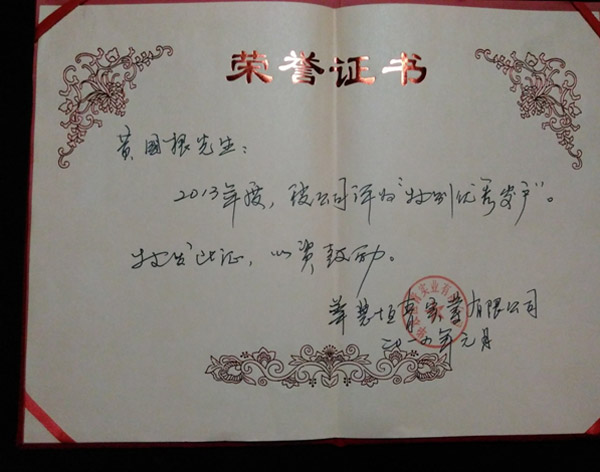 荣誉证书
黄国振先生：
2013年度，被公司评为“特别优秀客户”。
特发此证，以资鼓励。
华慧恒 实业有限公司
二〇一四年元月